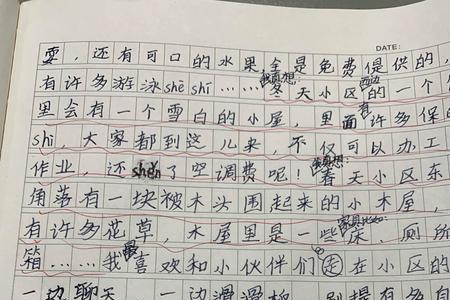 DATE:
要，还有可口的水果全是免费提供的，
我真想：
西边
有许多游泳shè shī……冬天小区的一个
有
里会有一个雪白的小屋，里面许多保
shī，大家都到这儿来，不仅可以办工
我真想：
作业，还shěn了空调费呢！春天小区东
角落有一块被木头围起来的小木屋，
家具比如：
有许多花草，木屋里是一些床，厕所
最
箱……我喜欢和小伙伴们走在小区的
一边聊天 一边滑滑 别提有多